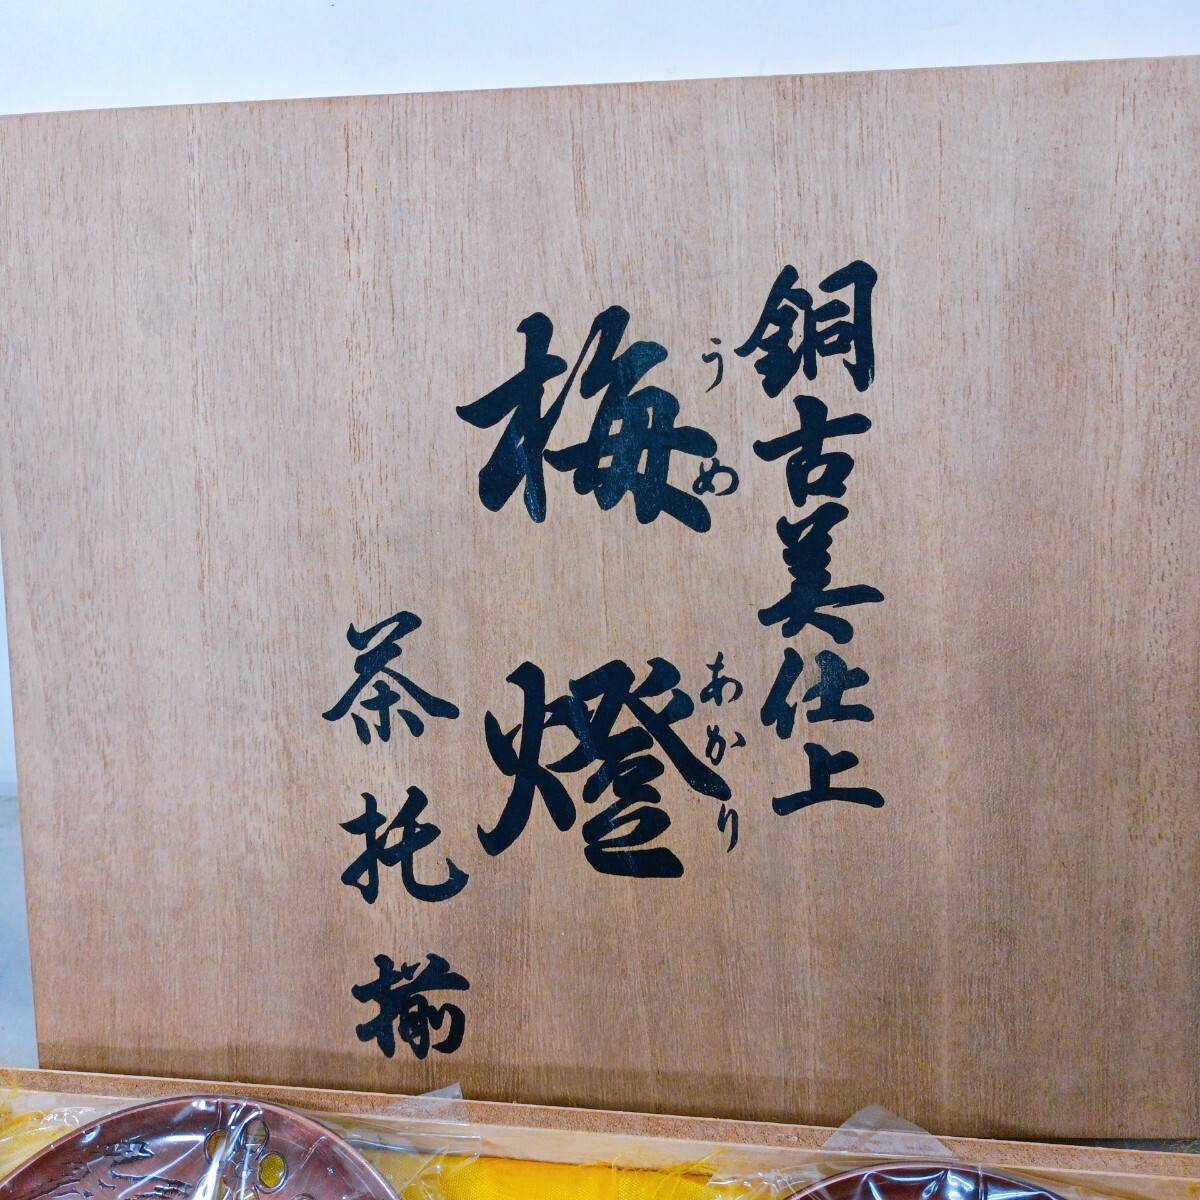 銅古美仕上
うめ あかり
梅燈
茶托揃